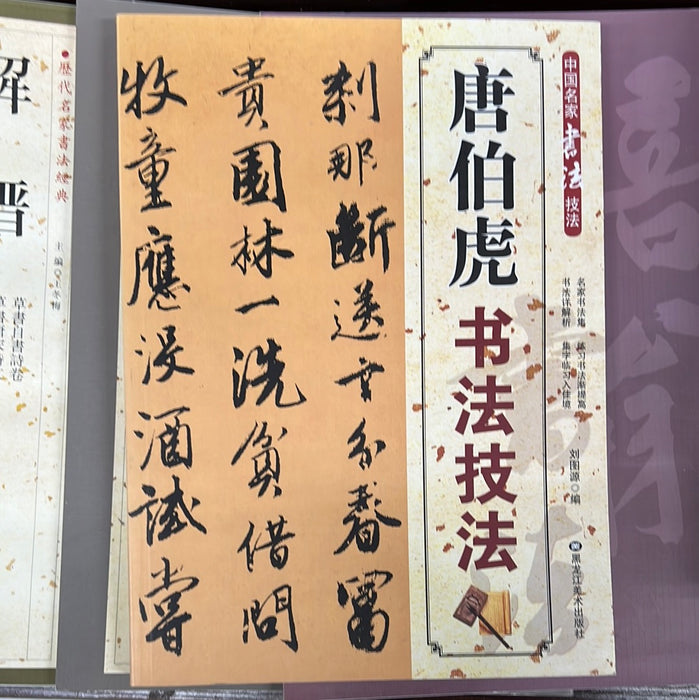 刹那断送十分春富
貴園林一洗貧借問
牧童應没酒試嘗
唐伯虎
书法技法
中国名家书法技法
名家书法集 练习书法渐提高
书法详解析 集字临习入佳境
刘图源 编
黑龙江美术出版社
歷代名家書法經典
主编 王冬梅
草書自書詩卷
解
晋